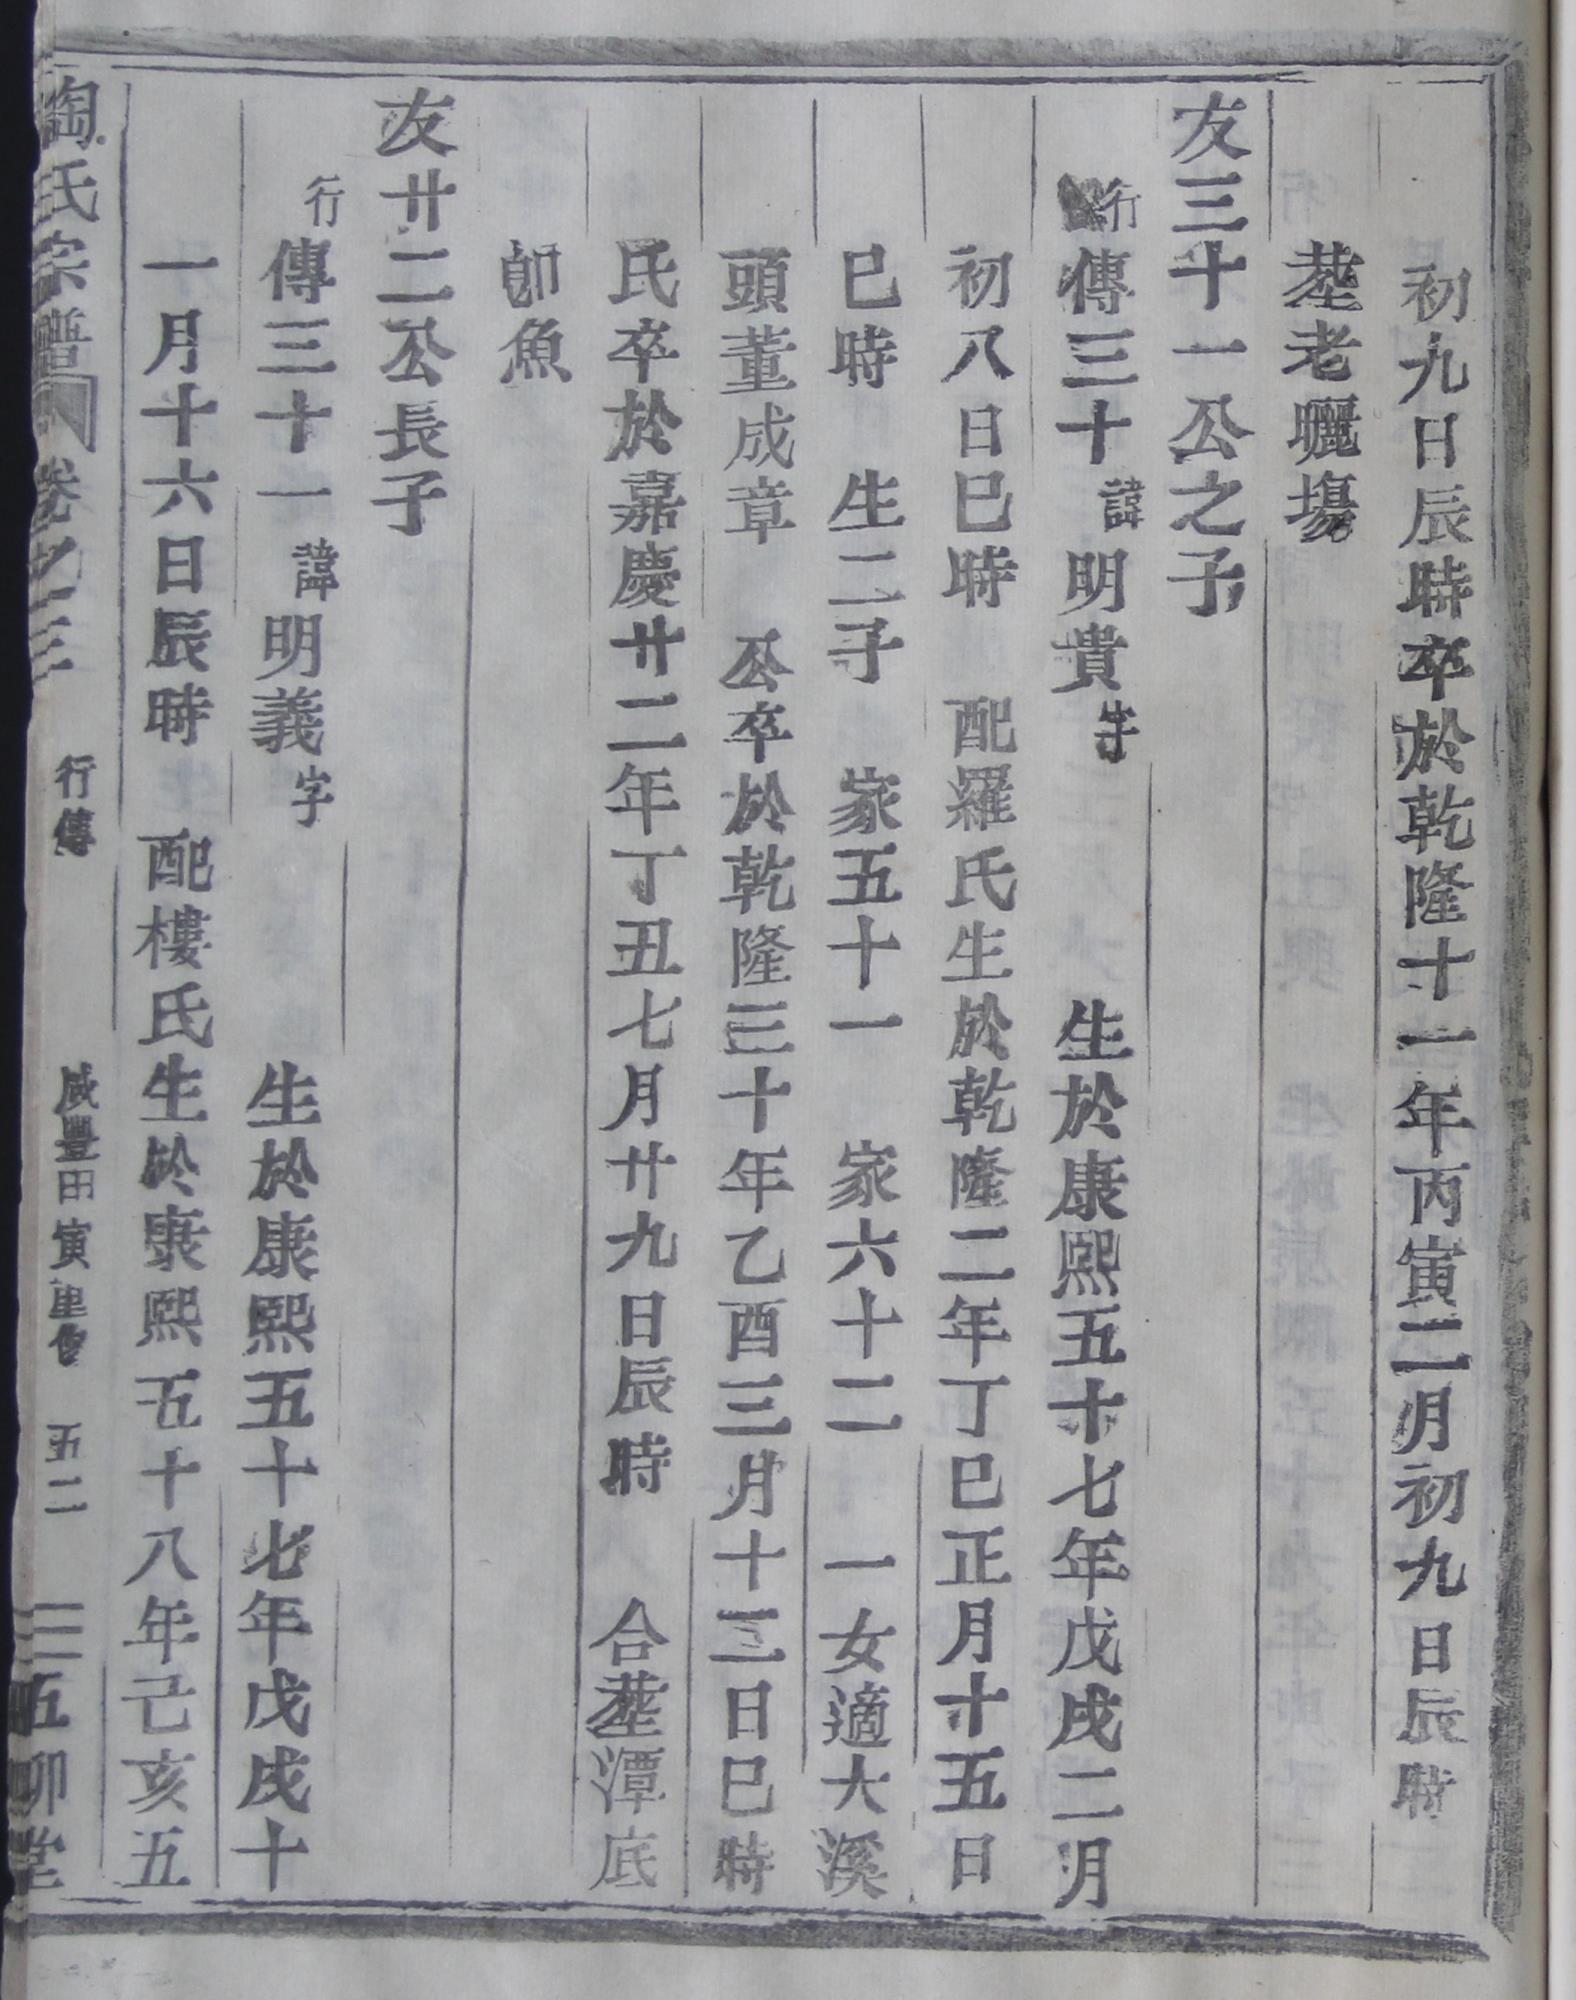 初九日辰時卒於乾隆十一年丙寅二月初九日辰時
塟老曬塲
友三十一公之子
行傳三十諱明貴字 生於康熙五十七年戊戌二月
初八日巳時 配羅氏生於乾隆二年丁巳正月十五日
巳時 生二子 家五十一 家六十二 一女適大溪
頭董成章 公卒於乾隆三十年乙酉三月十三日巳時
氏卒於嘉慶廿二年丁丑七月廿九日辰時 合塟潭底
卹魚
友廿二公長子
行傳三十一諱明義字 生於康熙五十七年戊戌十
一月十六日辰時 配樓氏生於康熙五十八年己亥五
陶氏宗譜 卷之三 行傳 咸豐甲寅重修 五二 五柳堂